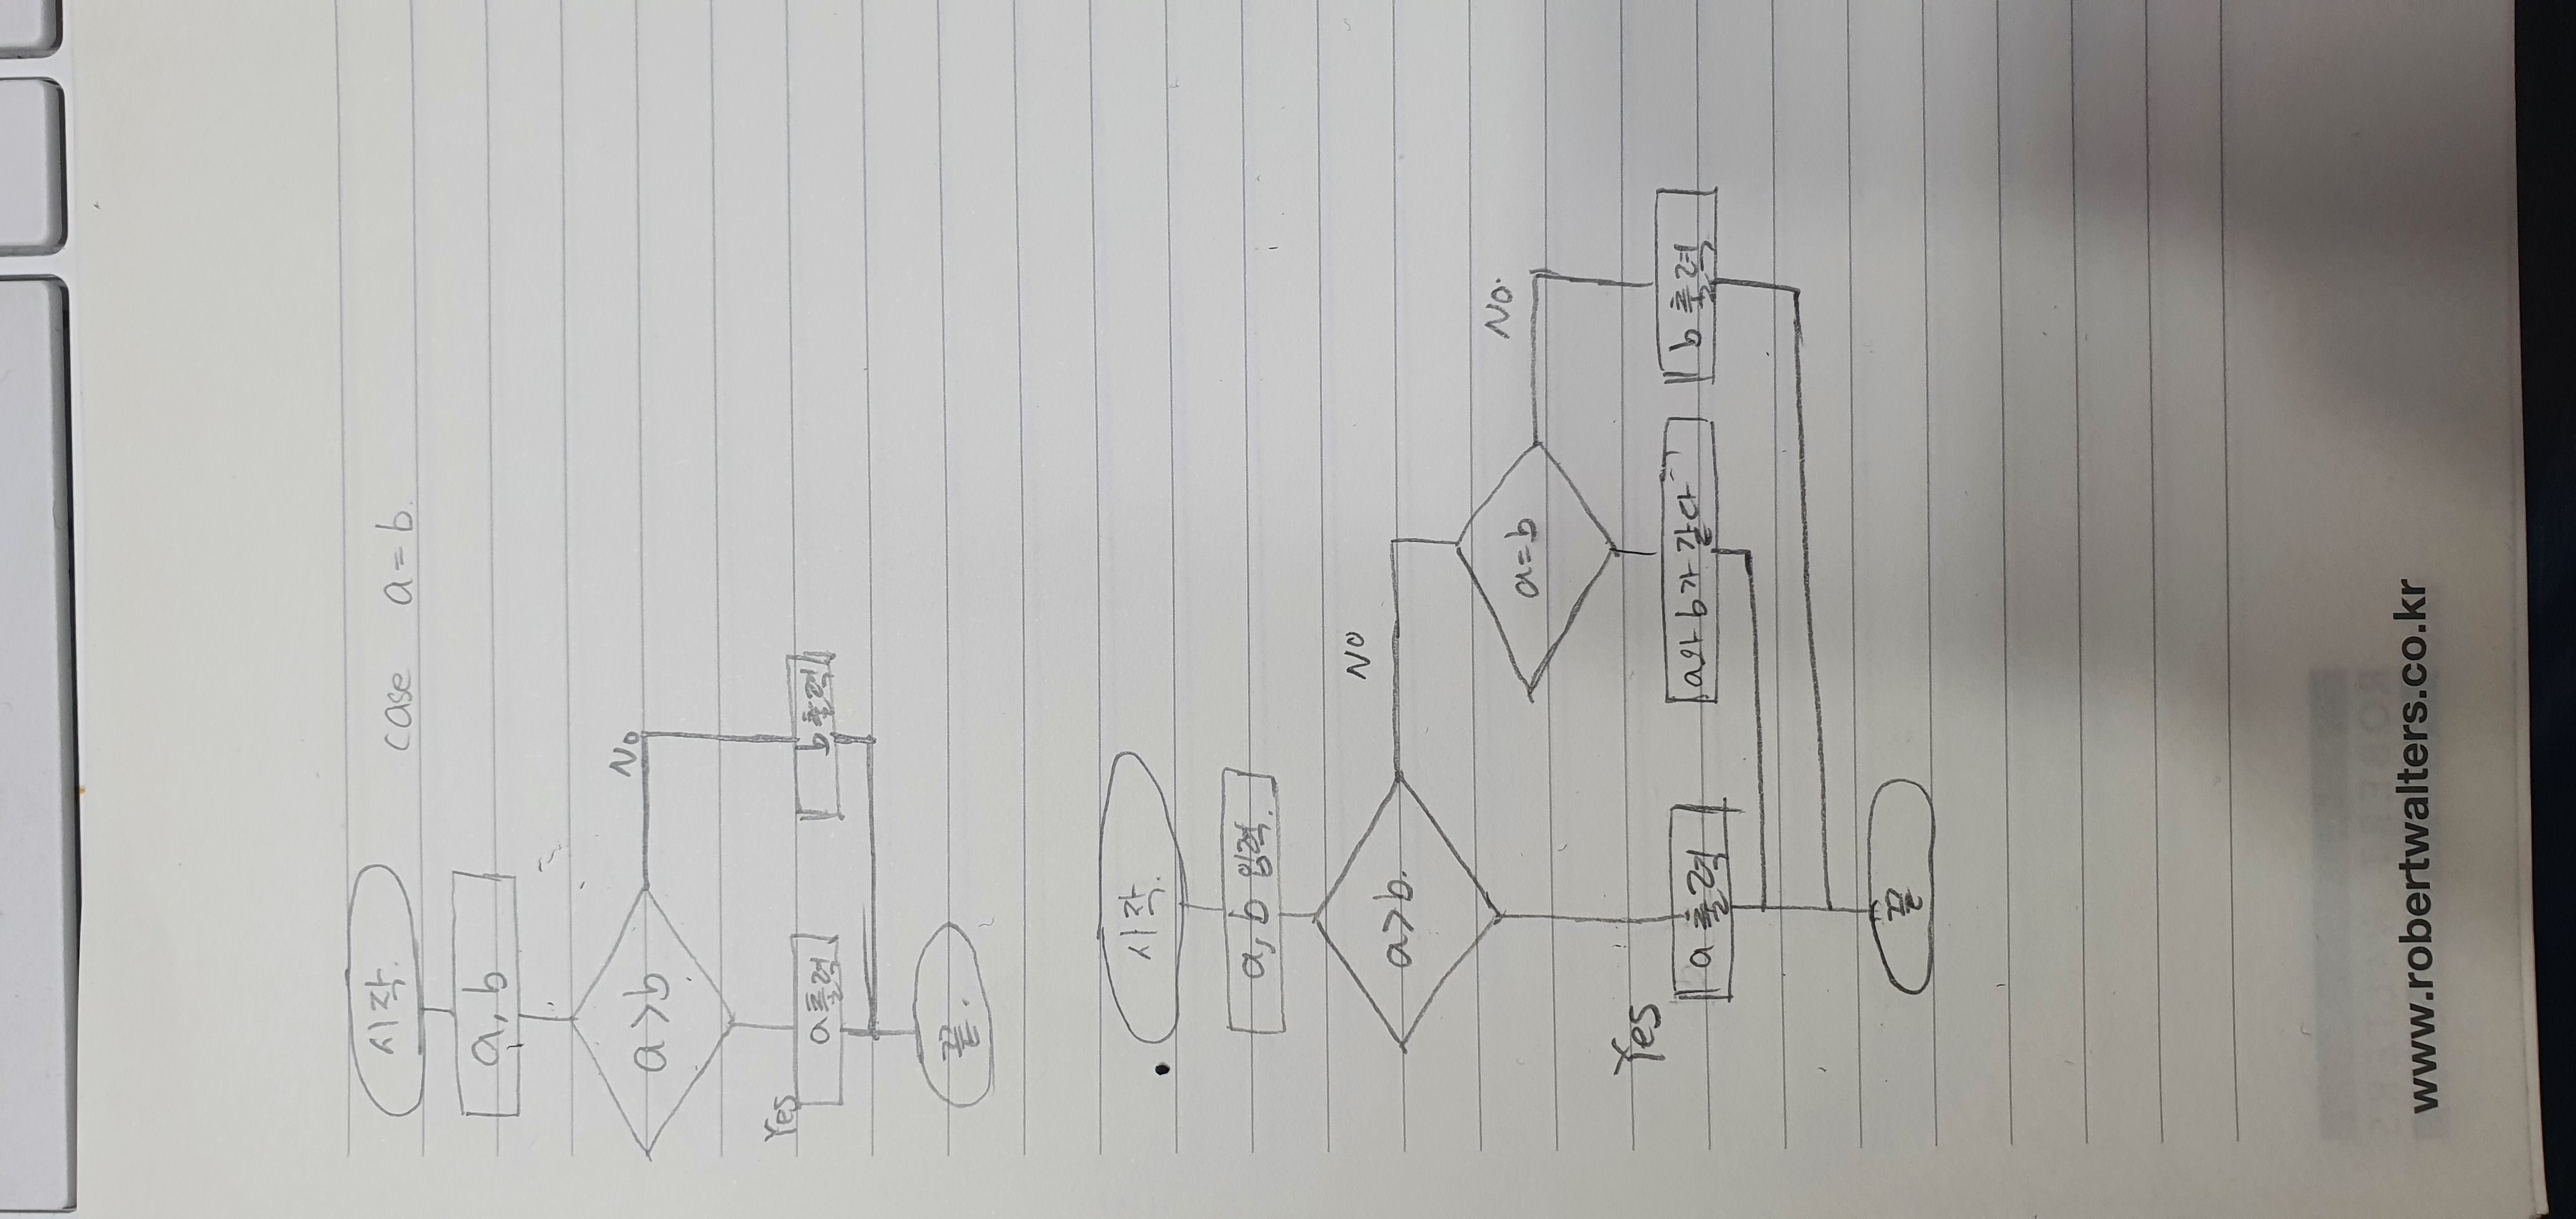 시작.
case a=b.
a, b
a>b
No
Yes
a 출력
b 출력
끝.
시작.
a, b 입력.
a>b.
NO
a=b
No.
Yes
a 출력
a와 b가 같다
b 출력
끝
ROBERT WALTERS
www.robertwalters.co.kr